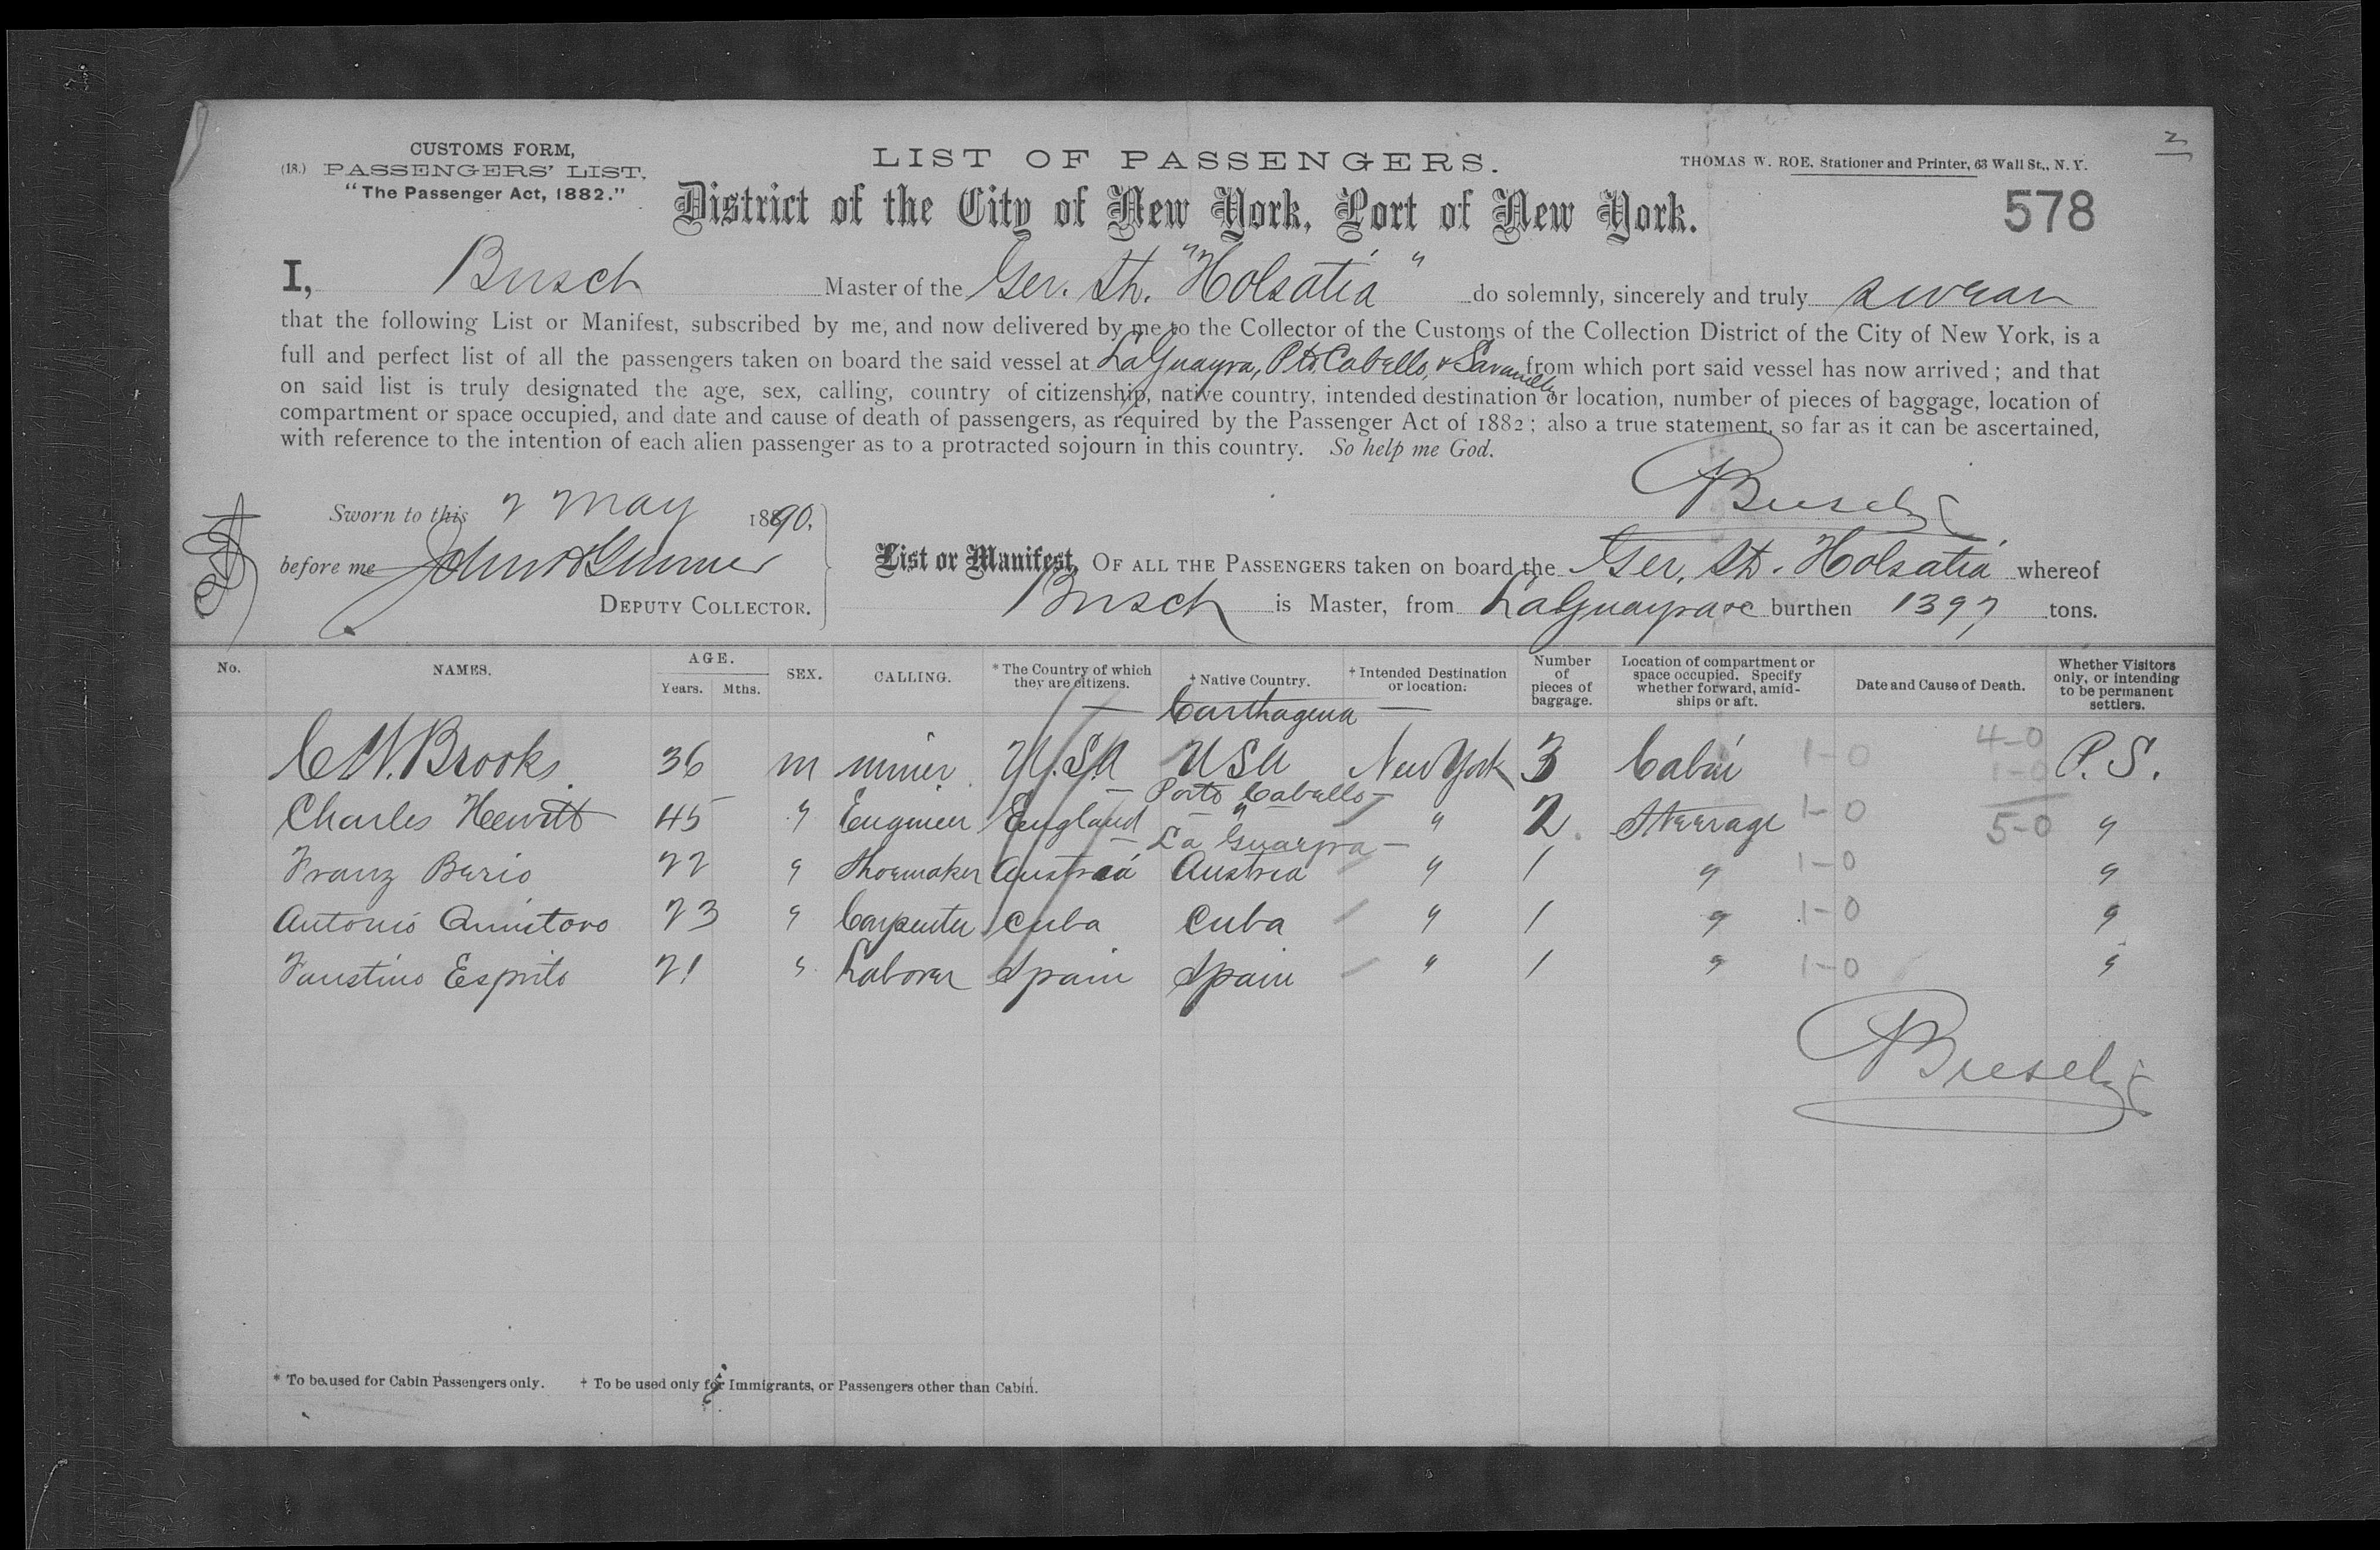 2
CUSTOMS FORM,
(18.) PASSENGERS' LIST,
"The Passenger Act, 1882."
LIST OF PASSENGERS.
THOMAS W. ROE, Stationer and Printer, 63 Wall St., N. Y.
District of the City of New York, Port of New York.
578
I, Busch Master of the Ger. St. "Holsatia" do solemnly, sincerely and truly swear
that the following List or Manifest, subscribed by me, and now delivered by me to the Collector of the Customs of the Collection District of the City of New York, is a
full and perfect list of all the passengers taken on board the said vessel at LaGuayra, Pto. Cabello, & Savanilla from which port said vessel has now arrived; and that
on said list is truly designated the age, sex, calling, country of citizenship, native country, intended destination or location, number of pieces of baggage, location of
compartment or space occupied, and date and cause of death of passengers, as required by the Passenger Act of 1882; also a true statement, so far as it can be ascertained,
with reference to the intention of each alien passenger as to a protracted sojourn in this country. So help me God.
Busch
Sworn to this 2 May 1890,
before me John
DEPUTY COLLECTOR.
List or Manifest, OF ALL THE PASSENGERS taken on board the Ger. St. Holsatia whereof
Busch is Master, from LaGuayra &c burthen 1397 tons.
No. NAMES. AGE. Years. Mths. SEX. CALLING. * The Country of which they are citizens. † Native Country. † Intended Destination or location. Number of pieces of baggage. Location of compartment or space occupied. Specify whether forward, amidships or aft. Date and Cause of Death. Whether Visitors only, or intending to be permanent settlers.
— Carthagena —
C W. Brooks 36 m miner U.S.A USA New York 3 Cabin 1-0 4-0 P. S.
1-0
— Porto Cabello —
Charles Hewitt 45 " Engineer England " " 2 Steerage 1-0 5-0 "
— La Guayra —
Franz Berio 22 " Shoemaker Austria Austria " 1 " 1-0 "
Antonio 23 " Carpenter Cuba Cuba " 1 " 1-0 "
Faustino Esprito 21 " Laborer Spain Spain " 1 " 1-0 "
Busch
* To be used for Cabin Passengers only. † To be used only for Immigrants, or Passengers other than Cabin.